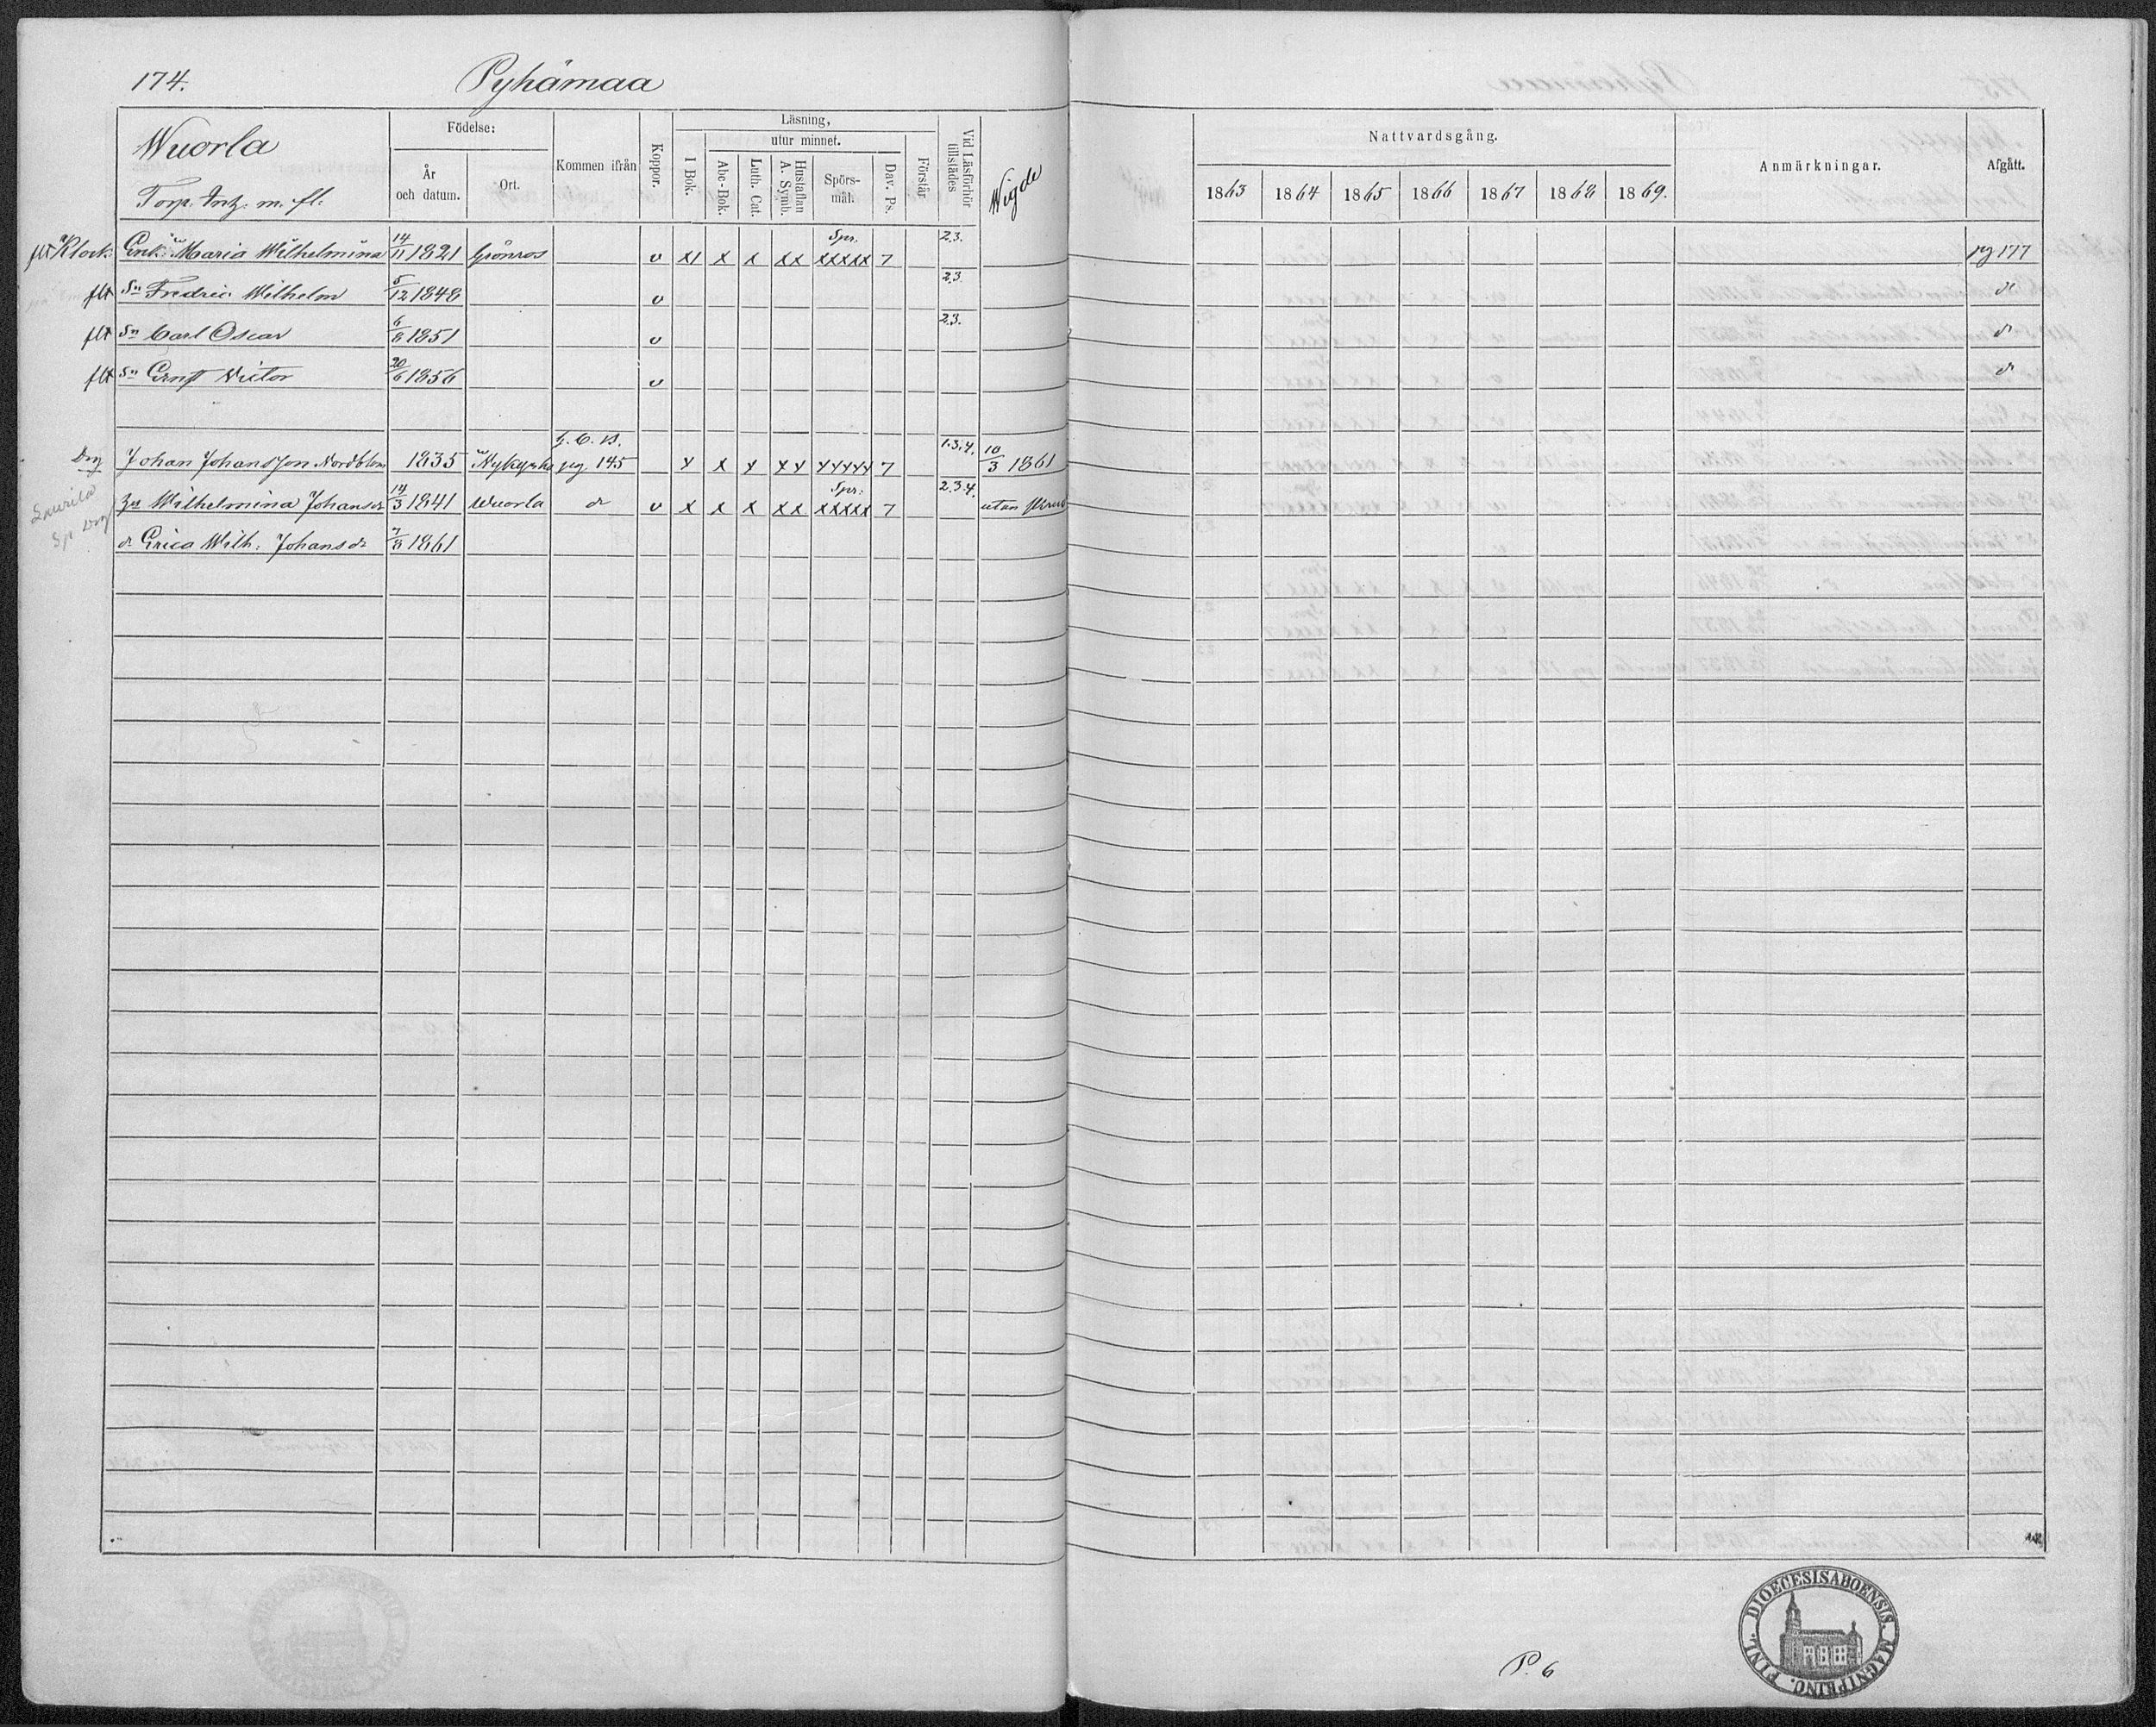 174. Pyhämaa
Wuorla
Torp. Intz. m. fl.
Födelse:
År och datum.
Ort.
Kommen ifrån
Koppor.
Läsning,
I Bok.
utur minnet.
Abc-Bok.
Luth. Cat.
Hustaflan A. Symb.
Spörsmål.
Dav. Ps.
Förstår
Vid Läsförhör tillstädes
Wigde
Nattvardsgång.
1863 1864 1865 1866 1867 1868 1869.
Anmärkningar.
Afgått.
flt Klock. Enk. Maria Wilhelmina 14/11 1821 Grönros v x1 x x xx Spr. xxxxx 7 2.3. pg 177
flt Sn Fredric Wilhelm 5/12 1848 v 2.3. d:
flt Sn Carl Oscar 6/8 1851 v 2.3. d:
flt Sn Ernst Victor 20/6 1856 v d:
Drg Johan Johansson Nordblom 1835 Nykyrko pg 145 x x x xx xxxxx 7 1.3.4. 10/3 1861
Laurila
Wilhelmina Johansdr 14/3 1841 Wuorla d: v x x x xx Spr. xxxxx 7 2.3.4. utan
d: Erica Wilh: Johansdr 7/8 1861
P. 6
DIOECESIS ABOENSIS. MAGNI PRINC. FINL.